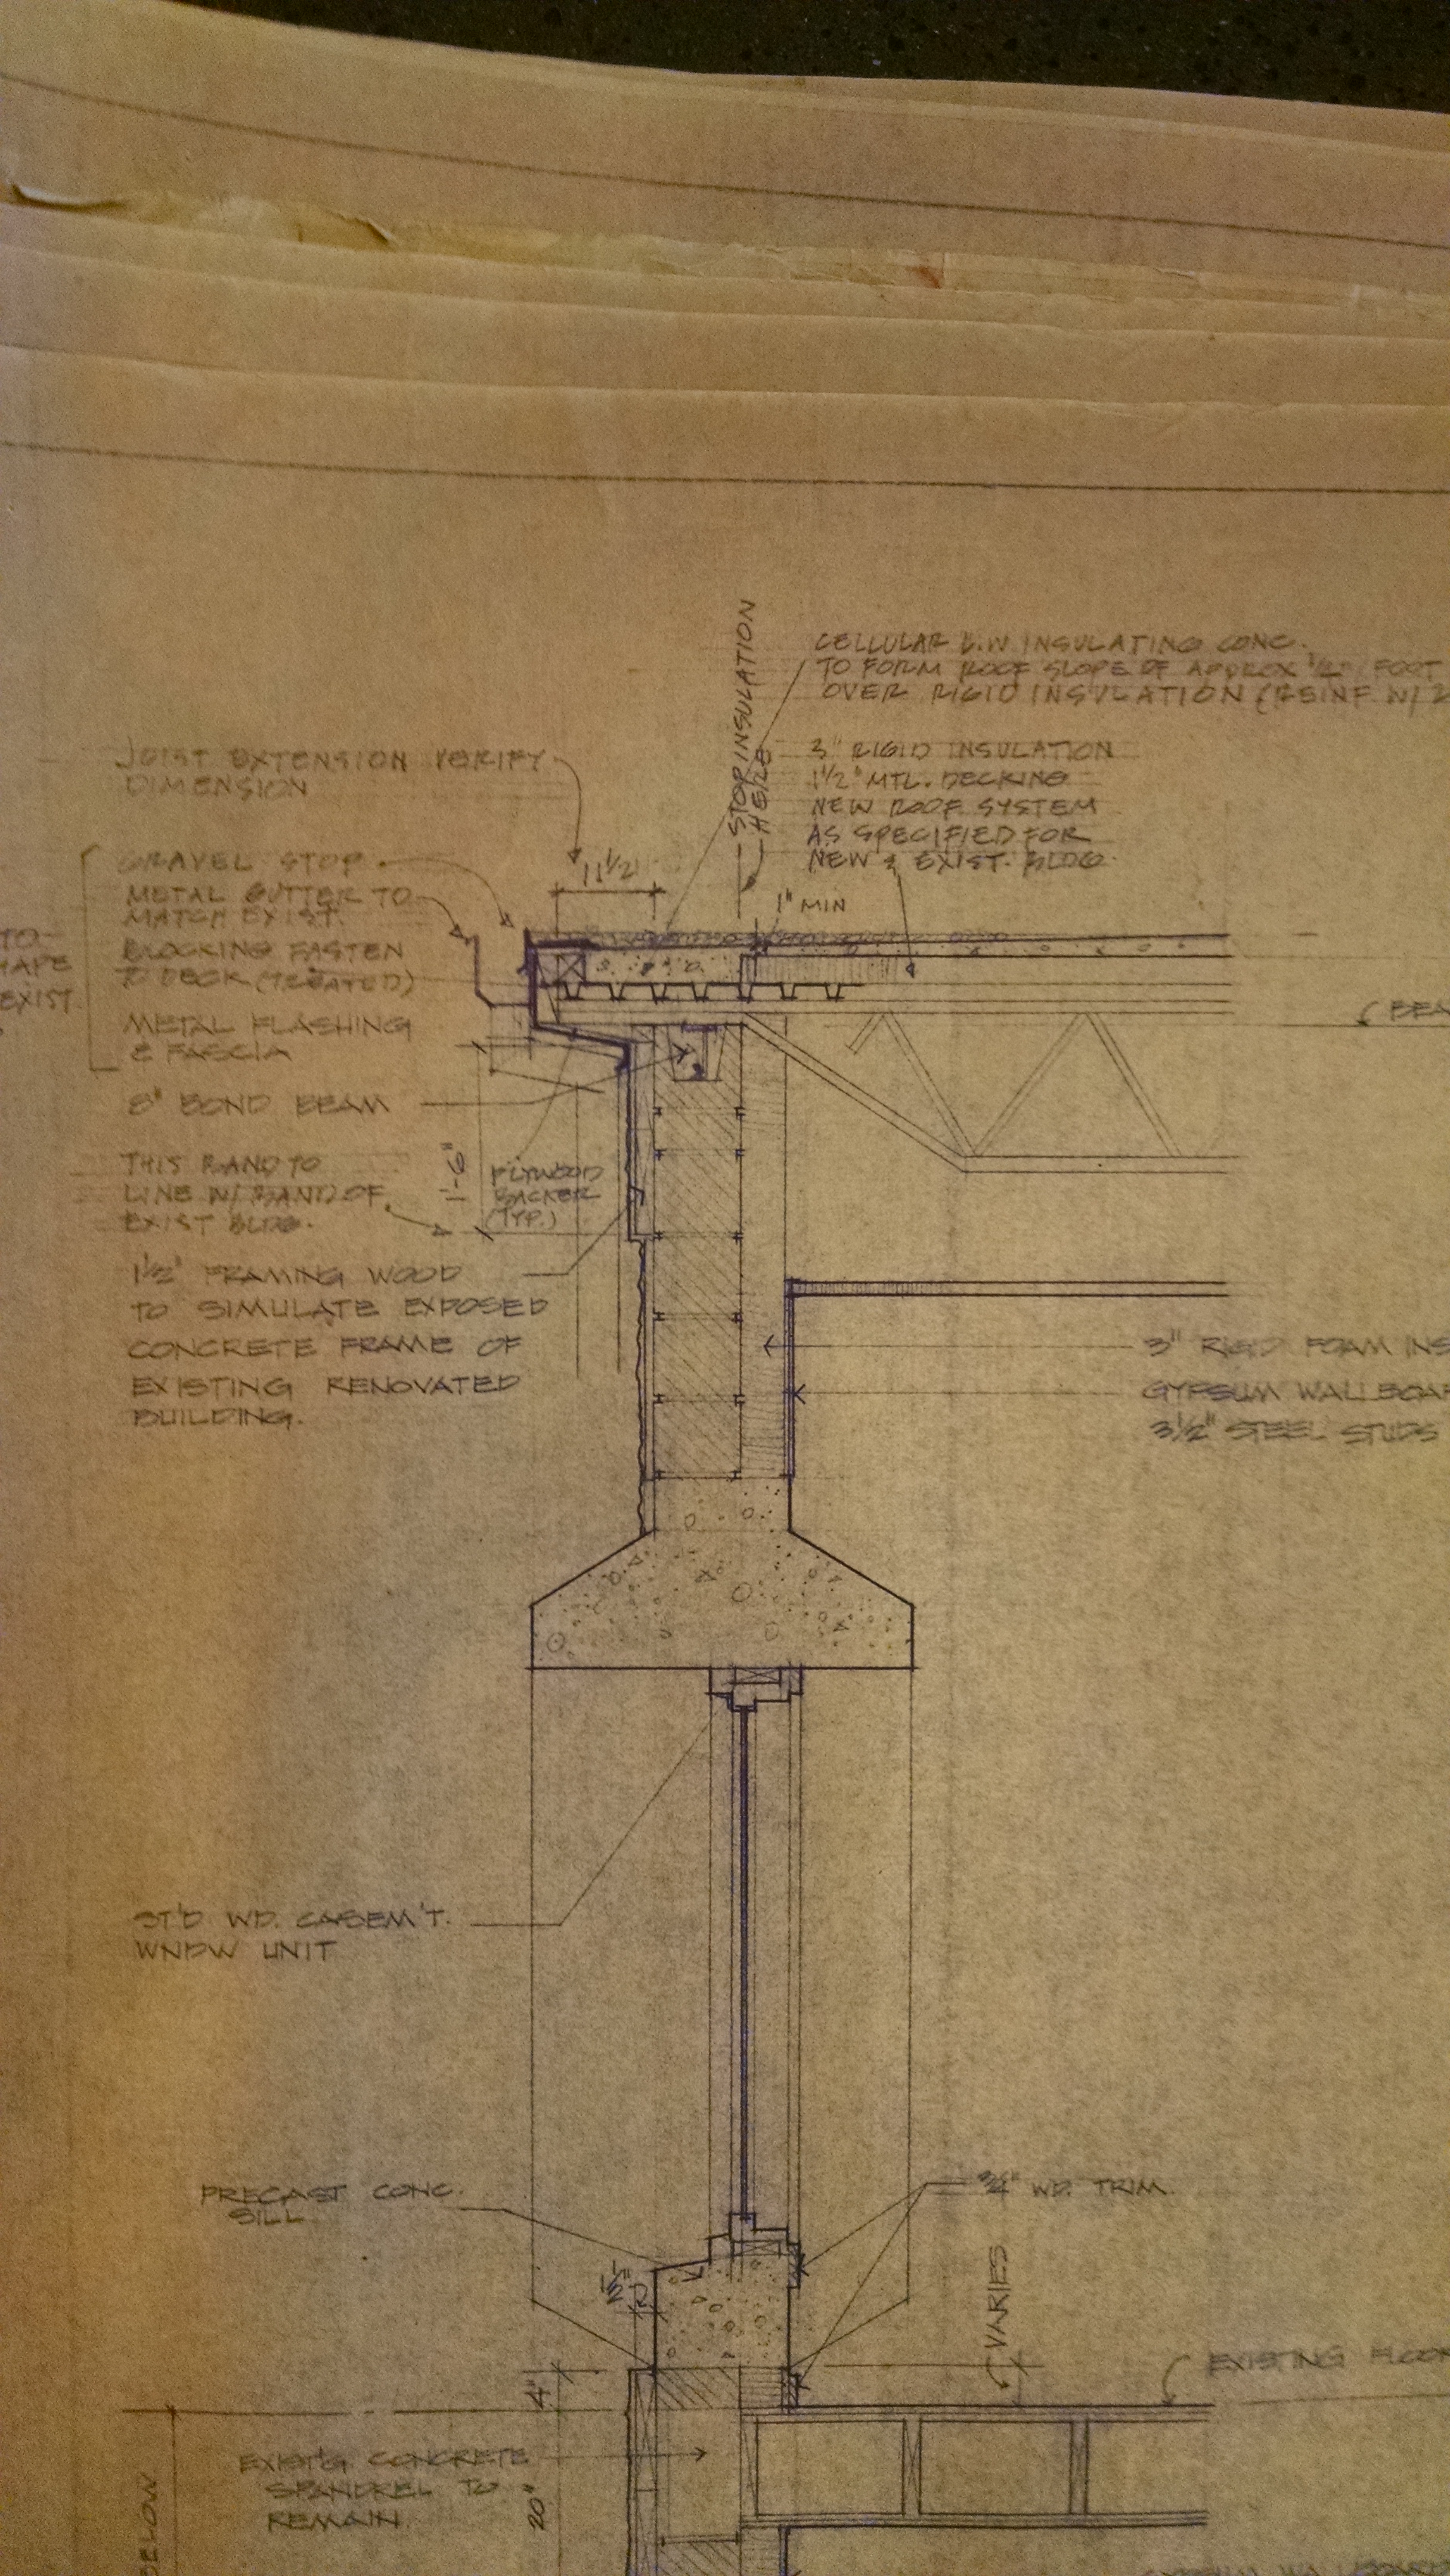 STOP INSULATION
HERE
CELLULAR L.W. INSULATING CONC.
TO FORM ROOF SLOPE OF APPROX 1/2" / FOOT
OVER RIGID INSULATION (REINF. W/ 2
JOIST EXTENSION VERIFY
DIMENSION
3" RIGID INSULATION
1 1/2" MTL. DECKING
NEW ROOF SYSTEM
AS SPECIFIED FOR
NEW & EXIST. BLDG.
11 1/2"
1" MIN
GRAVEL STOP
METAL GUTTER TO
MATCH EXIST.
BLOCKING FASTEN
TO DECK (TREATED)
METAL FLASHING
& FASCIA
TO
EXIST.
BEA
8" BOND BEAM
THIS BAND TO
LINE W/ BAND OF
EXIST BLDG.
1'-6"
PLYWOOD
BACKER
(TYP.)
1 1/2" FRAMING WOOD
TO SIMULATE EXPOSED
CONCRETE FRAME OF
EXISTING RENOVATED
BUILDING.
3" RIGID FOAM INS
GYPSUM WALLBOAR
3 1/2" STEEL STUDS
ST'D WD. CASEM'T.
WNDW UNIT
PRECAST CONC.
SILL
3/4" WD. TRIM
1 1/2"
VARIES
4"
EXISTING FLOOR
EXIST'G CONCRETE
SPANDREL TO
REMAIN
20"
BELOW